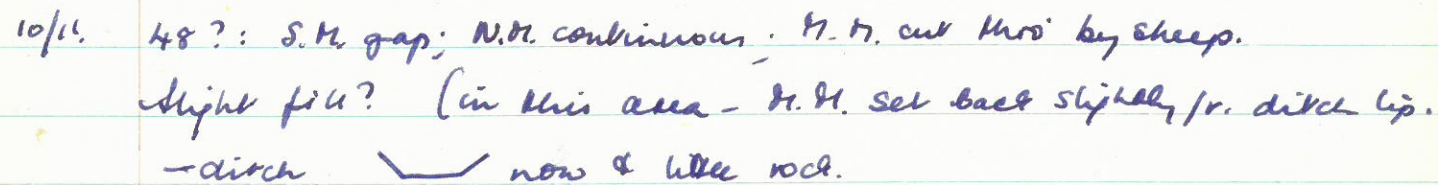 10/11. 48?: S.M. gap; N.M. continuous; M.M. cut thro' by sheep.
Slight fill? (in this area – M.M. set back slightly fr. ditch lip.
– ditch now & little rock.